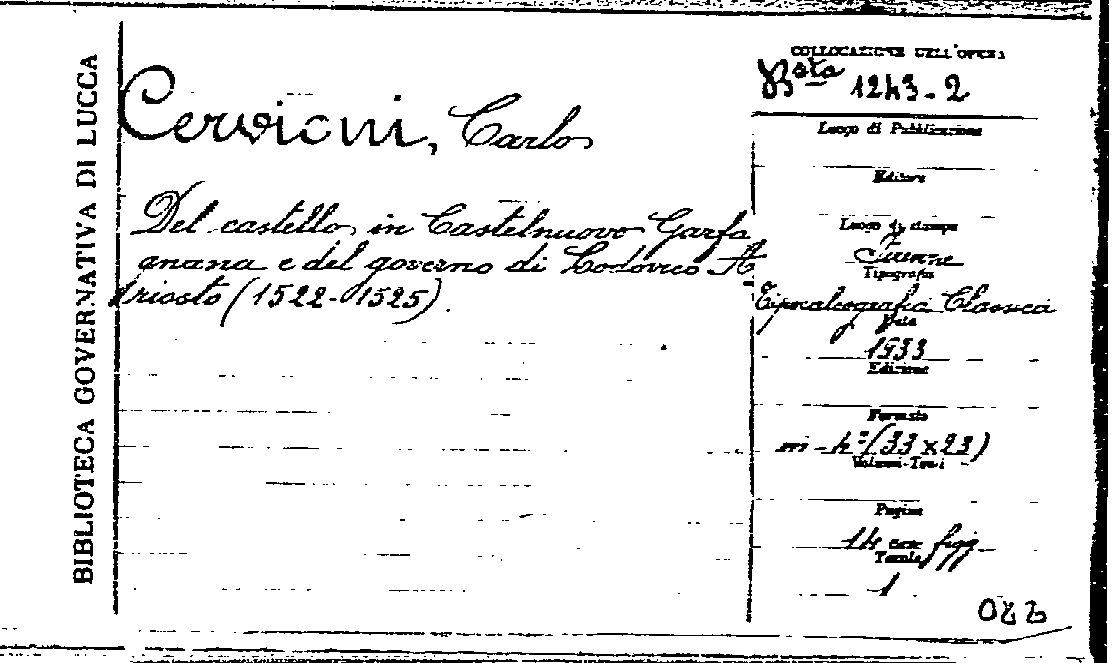 BIBLIOTECA GOVERNATIVA DI LUCCA
Cervioni, Carlo
Del castello in Castelnuovo Garfa
gnana e del governo di Lodovico A
driosto (1522-1525).
COLLOCAZIONE DELL'OPERA
Bsta 1243-2
Luogo di Pubblicazione
Editore
Luogo di stampa
Firenze
Tipografia
Tipocalcografia Classica
Data
1933
Edizione
Formato
in-4º (33x23)
Volumi-Tomi
Pagine
14 con figg.
Tavole
1